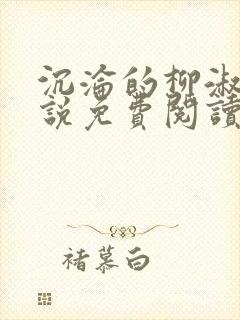 沉淪的柳淑
說免費閱讀
褚慕白